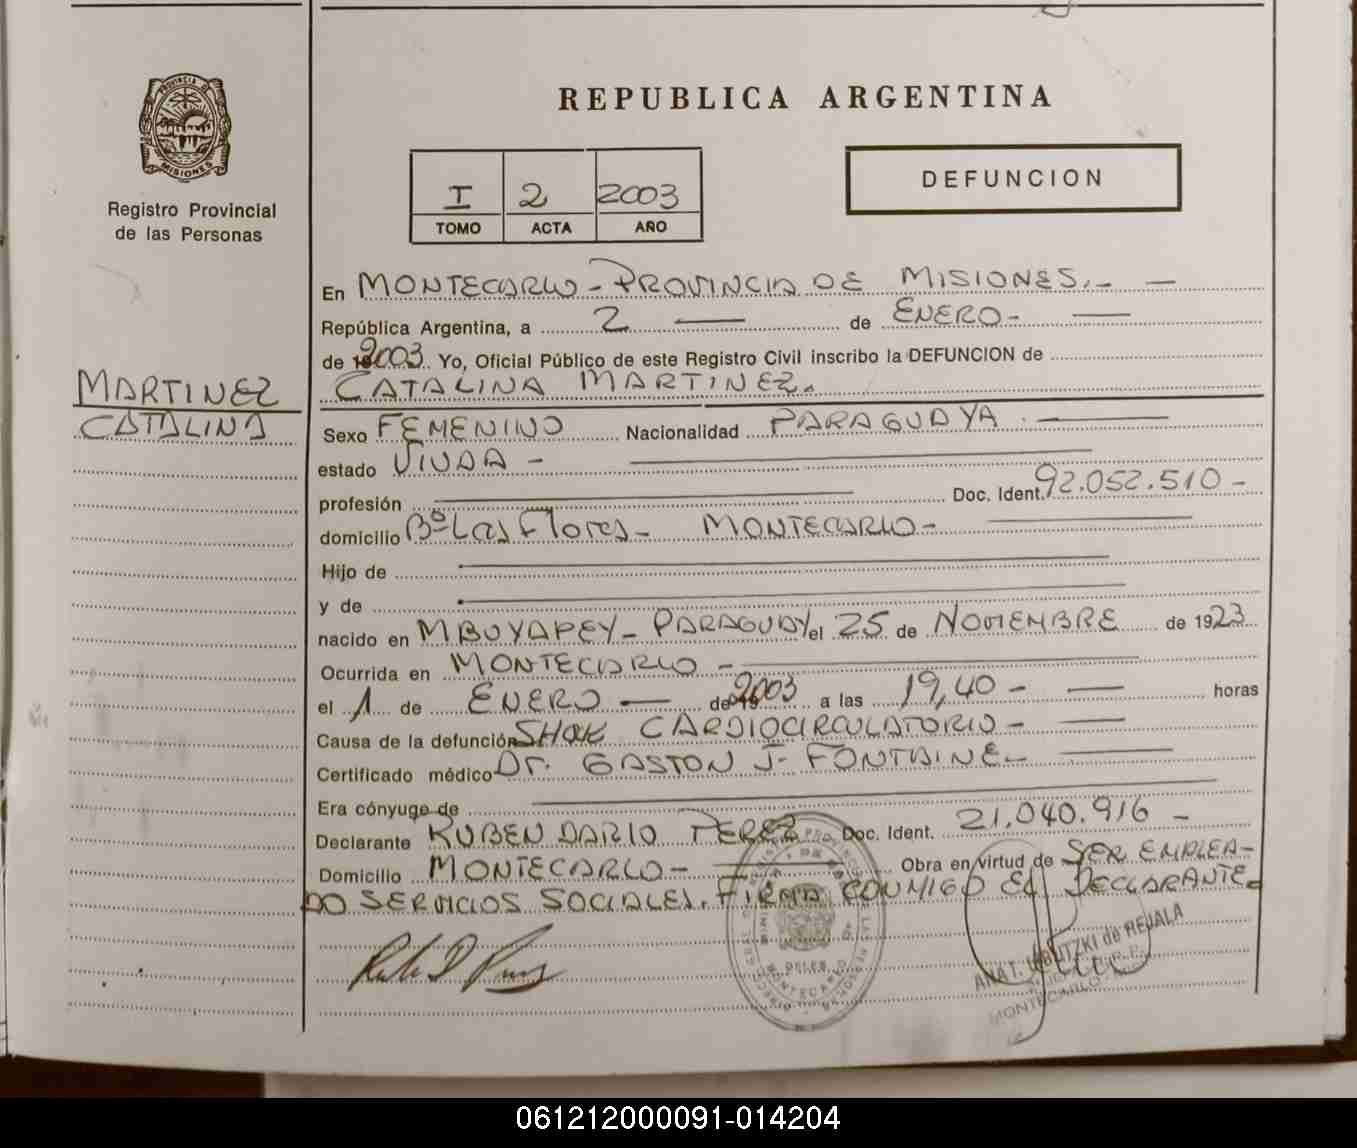 REPUBLICA ARGENTINA
PROVINCIA DE
MISIONES
Registro Provincial
de las Personas
I 2 2003
TOMO ACTA AÑO
DEFUNCION
En MONTECARLO - PROVINCIA DE MISIONES.-
República Argentina, a 2 de ENERO-
de 2003. Yo, Oficial Público de este Registro Civil inscribo la DEFUNCION de
MARTINEZ
CATALINA
CATALINA MARTINEZ.
Sexo FEMENINO Nacionalidad PARAGUAYA.
estado VIUDA -
profesión Doc. Ident. 92.052.510 -
domicilio Bº Las Flores - MONTECARLO -
Hijo de
y de
nacido en MBUYAPEY - PARAGUAY el 25 de NOVIEMBRE de 1923
Ocurrida en MONTECARLO -
el 1 de ENERO de 2003 a las 19,40 - horas
Causa de la defunción SHOK CARDIOCIRCULATORIO -
Certificado médico Dr. GASTON J. FONTAINE -
Era cónyuge de
Declarante RUBEN DARIO PEREZ Doc. Ident. 21.040.916 -
Domicilio MONTECARLO - Obra en virtud de SER EMPLEA-
DO SERVICIOS SOCIALES. FIRMA CONMIGO EL DECLARANTE.
de REJALA
MONTECARLO
061212000091-014204